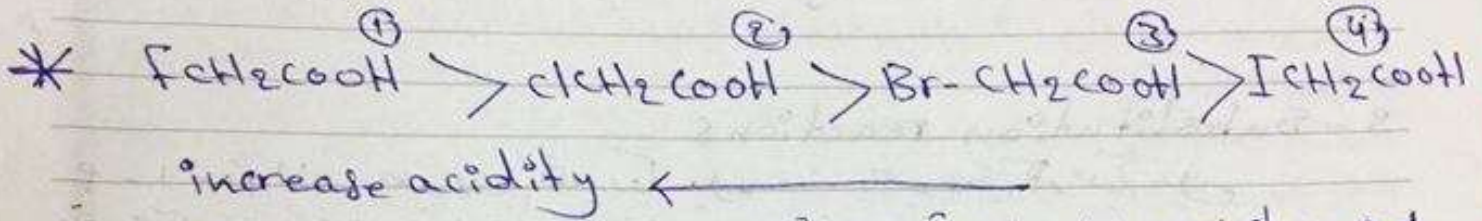 ① ② ③ ④
* FCH2COOH > ClCH2COOH > Br-CH2COOH > ICH2COOH
increase acidity ←